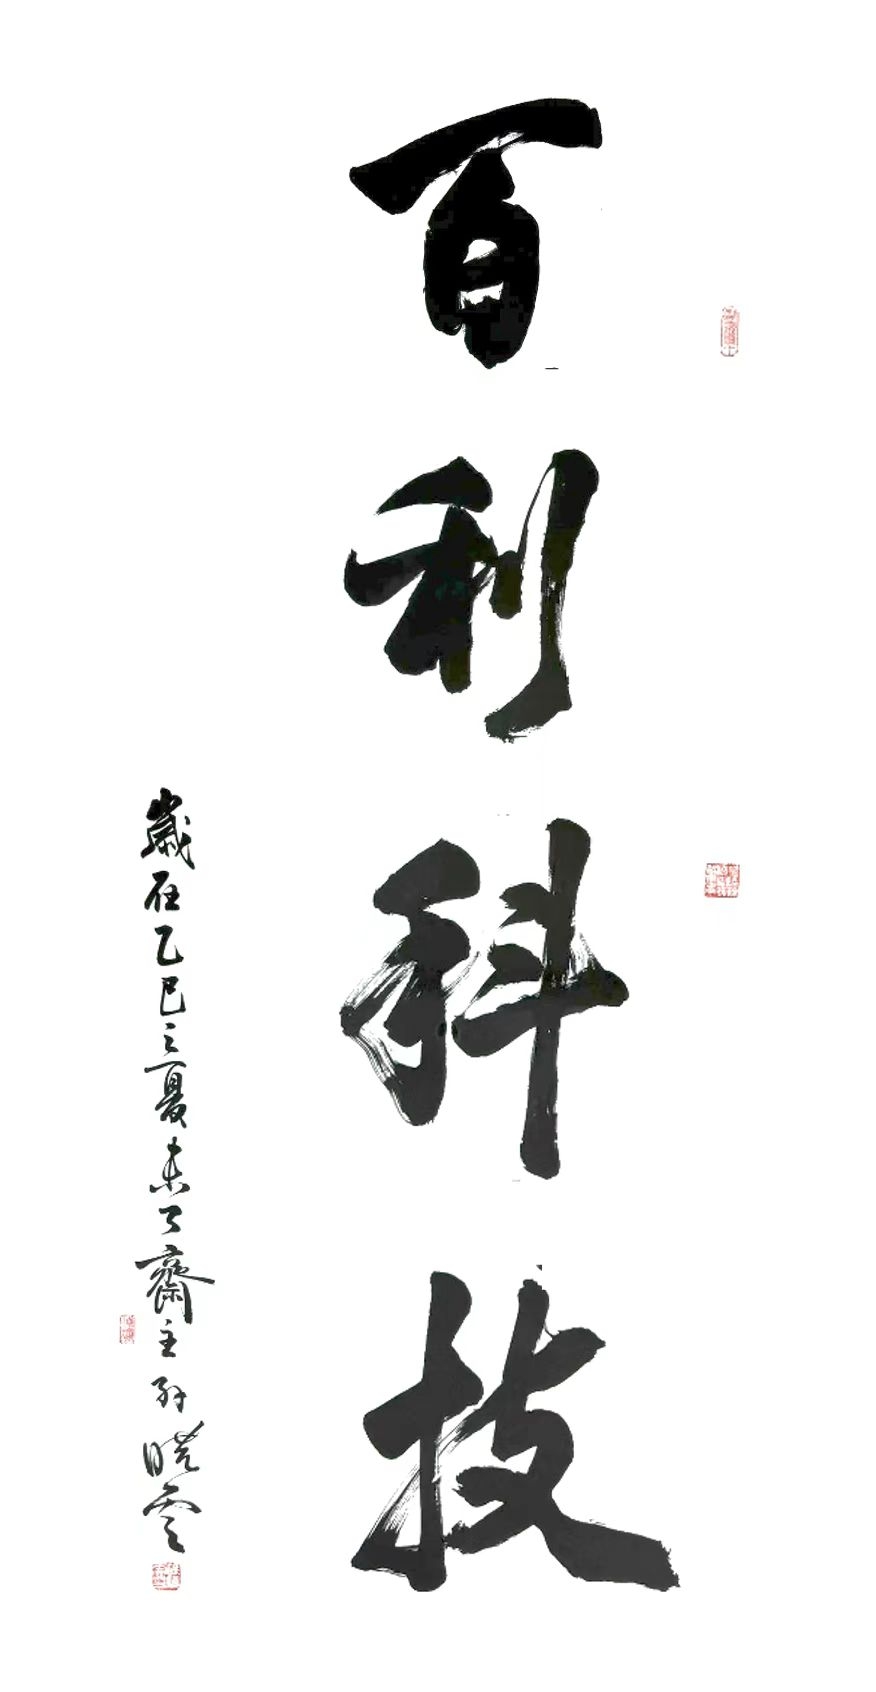 百利科技
歲在乙巳之夏未了齋主孙曉雲